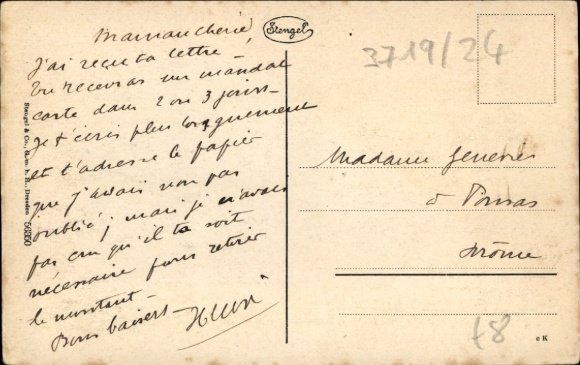 Maman chérie,
J'ai reçu ta lettre,
tu recevras un mandat
carte dans 2 ou 3 jours -
Je t'écris plus longuement
et t'adresse le papier
que j'avais non pas
oublié, mais je n'avais
pas cru qu'il te soit
nécessaire pour retirer
le montant -
Bons baisers -
Stengel
3719/24
Madame
à Ponsas
Drôme
Stengel & Co., G.m.b.H., Dresden 56350
f8
c K